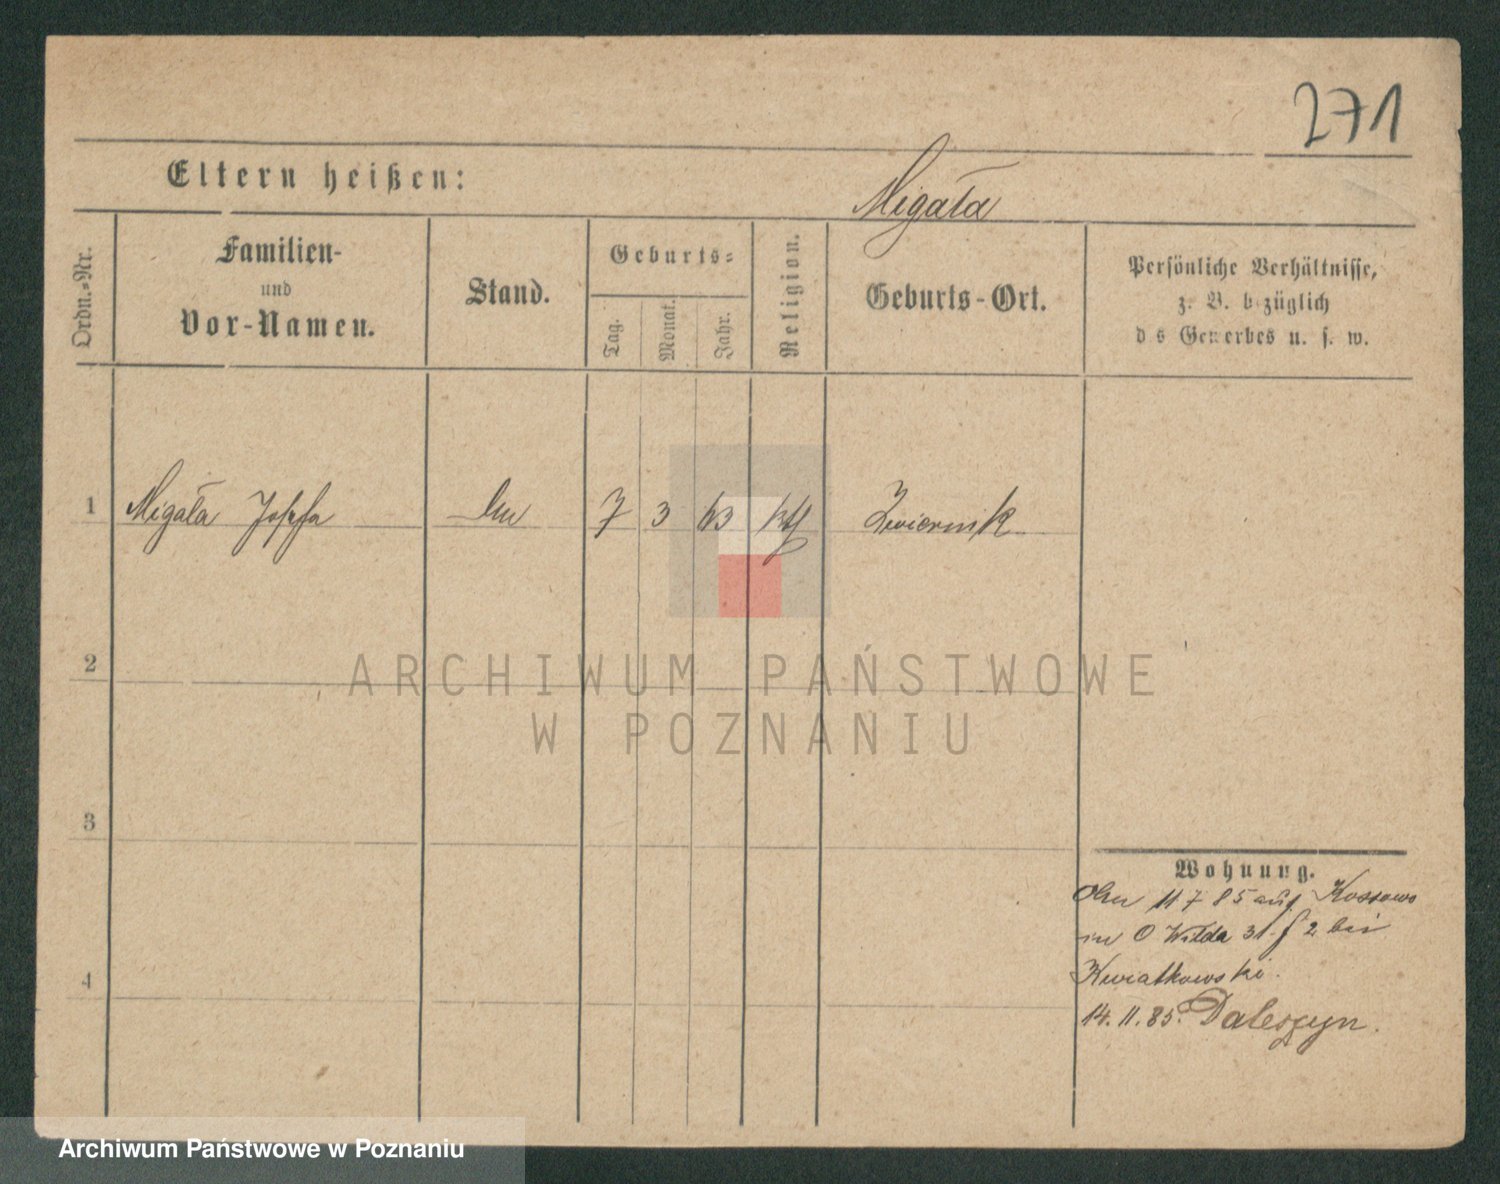 271
Eltern heißen:
Migała
Ordn.-Nr.
Familien-
und
Vor-Namen.
Stand.
Geburts-
Tag.
Monat.
Jahr.
Religion.
Geburts-Ort.
Persönliche Verhältnisse,
z. B. bezüglich
d s Gewerbes u. s. w.
1 Migała Josefa 7 3 63 kth Zwiernik
2
3
4
Wohnung.
11 7 85 auf Kossowo
in O Wilda 31 2 bei
Kwiatkowski.
14. 11. 85. Daleszyn.
ARCHIWUM PAŃSTWOWE
W POZNANIU
Archiwum Państwowe w Poznaniu